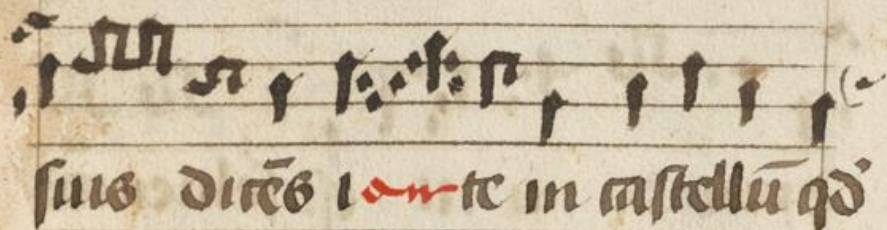 suis dicēs i te in castellū qd̕